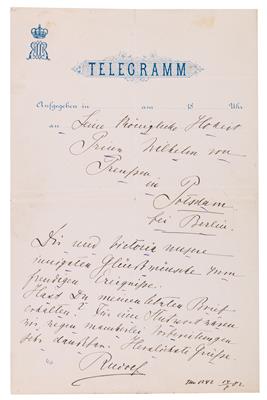 TELEGRAMM
Aufgegeben in am 18 Uhr
an Seine Königliche Hoheit
Prinz Wilhelm von
Preußen
in Potsdam
bei Berlin.
Dir und Victoria unsere
innigsten Glückwünsche zum
freudigen Ereignisse.
Hast Du meinen letzten Brief
erhalten? Für eine Antwort wären
wir wegen mancherlei Vorbereitungen
sehr dankbar. Herzlichste Grüße
Rudolf